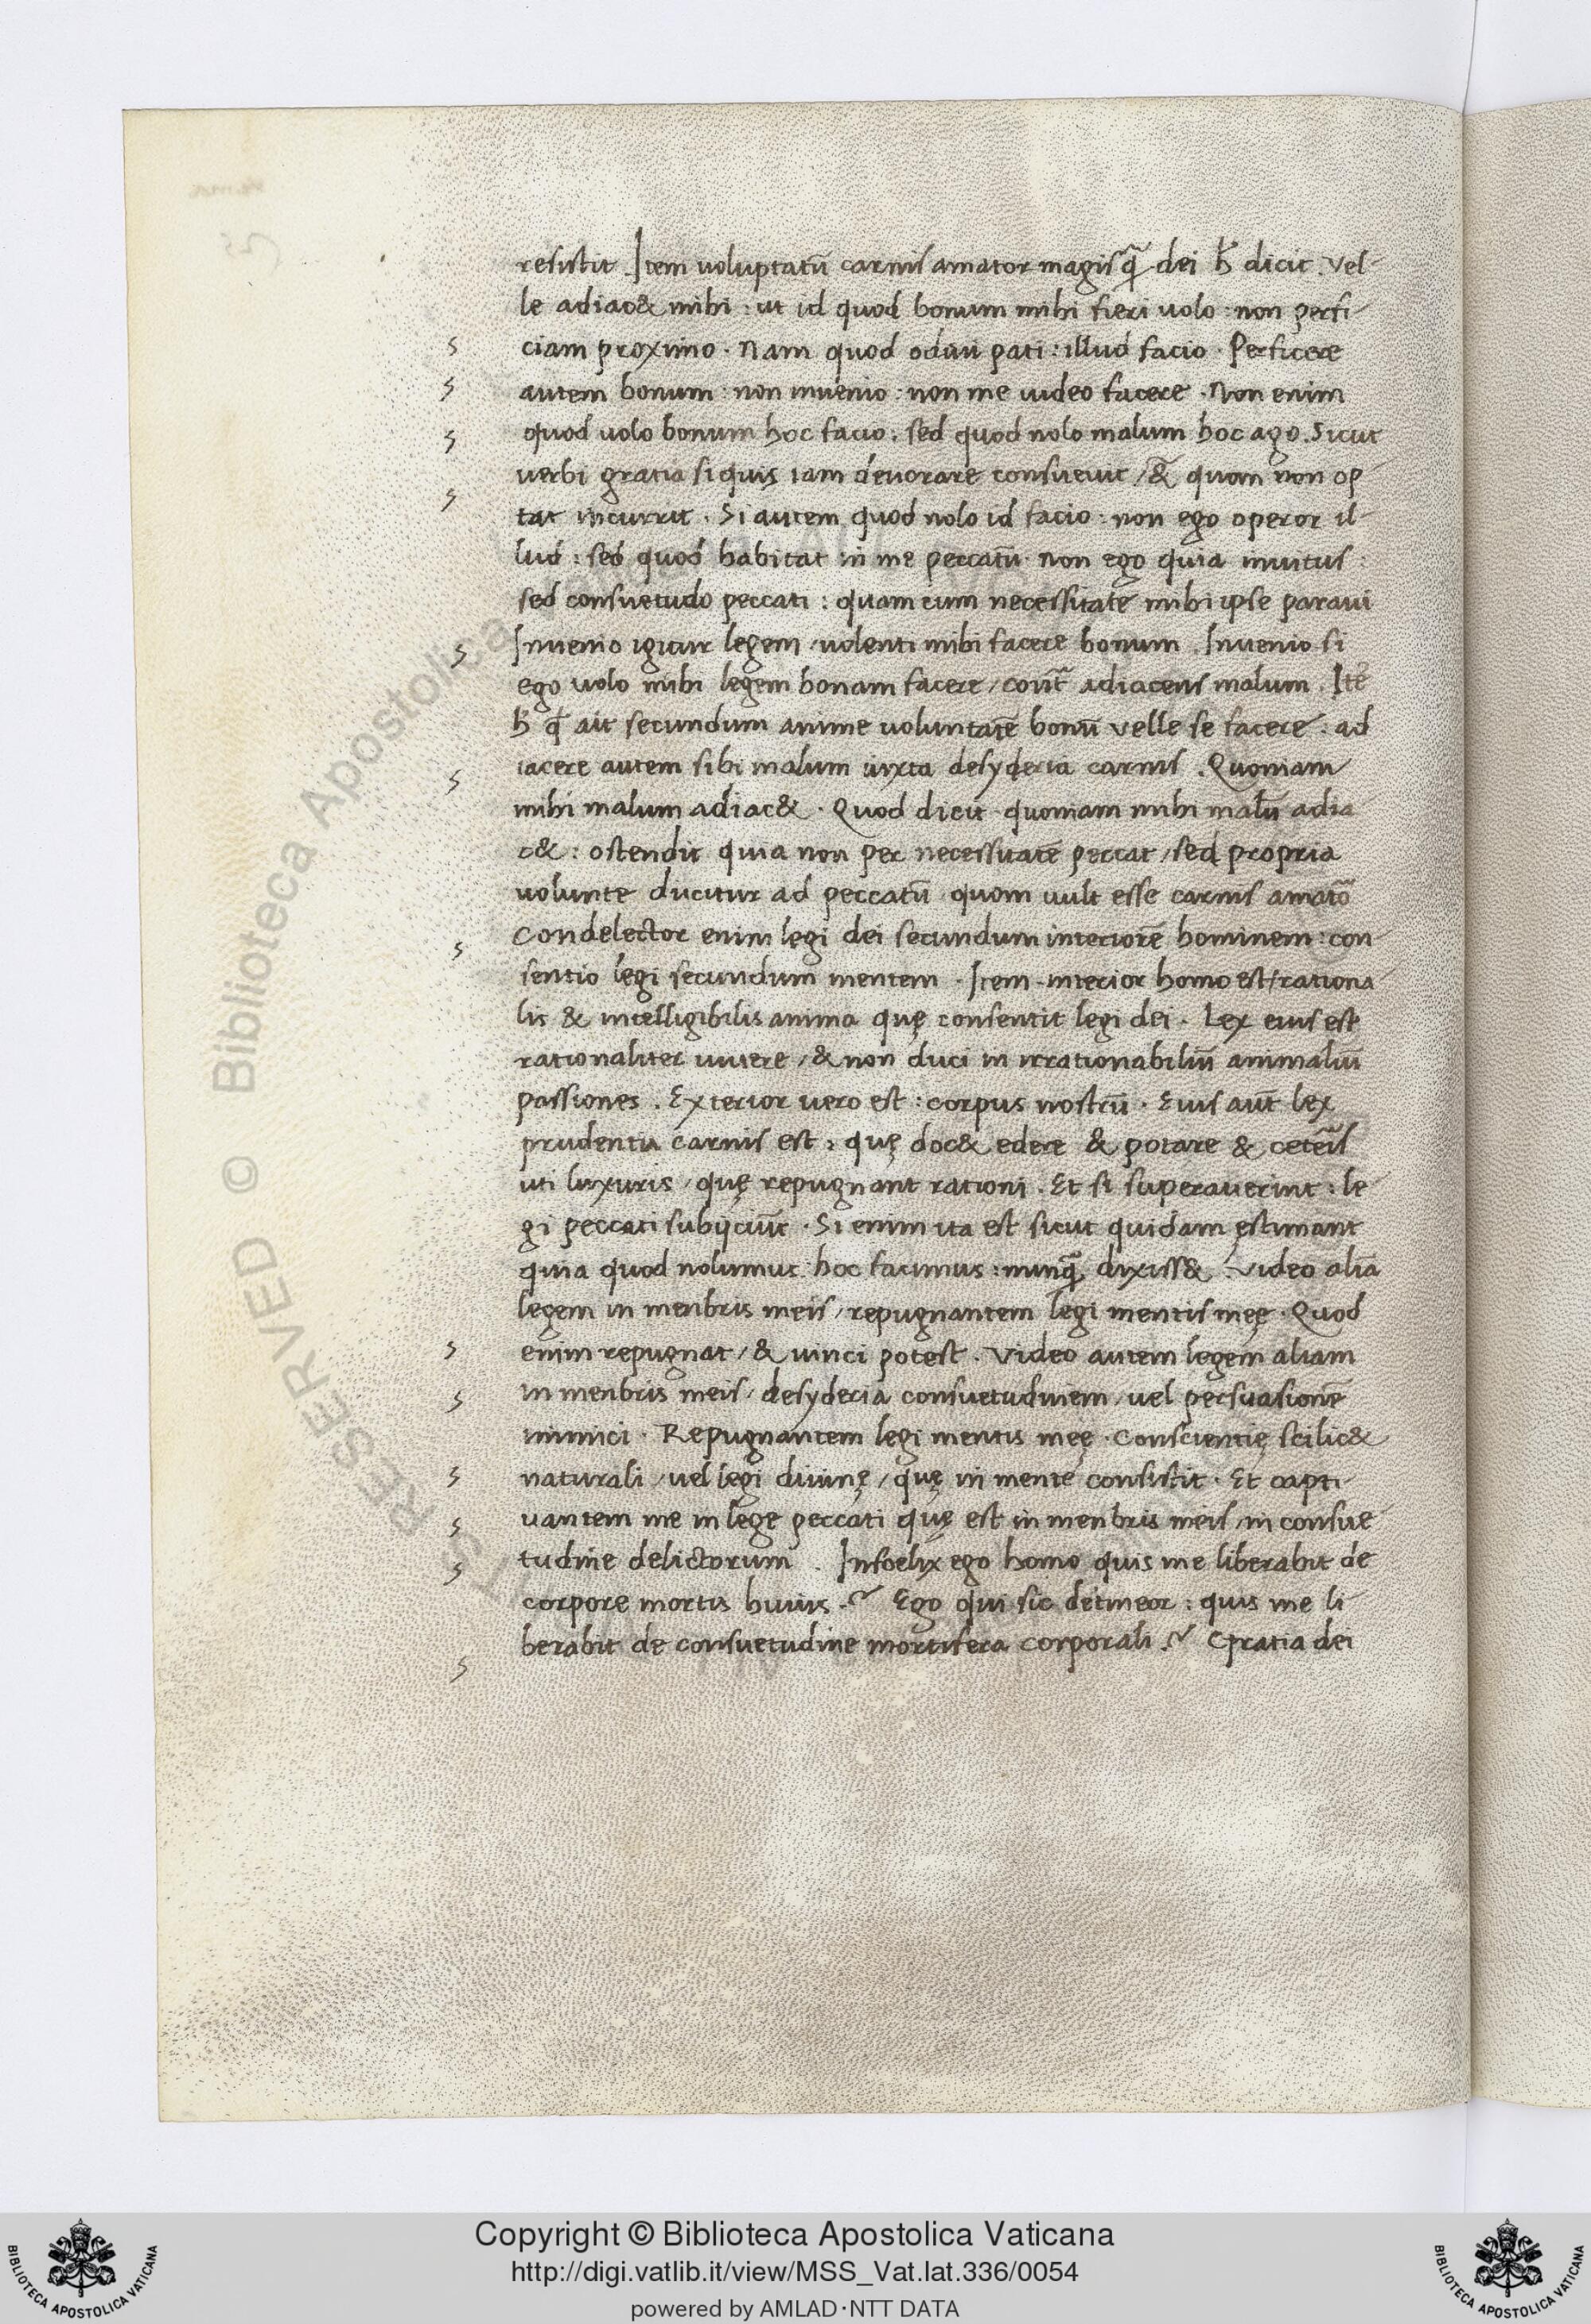 resistit. Item voluptatū carnis amator magis q̄ dei h̄ dicit. Vel-
le adiac& mihi: ut id quod bonum mihi fieri volo: non perfi-
ciam proximo. Nam quod odivi pati: illud facio. Perficere
autem bonum: non invenio: non me video facere. Non enim
quod volo bonum hoc facio: sed quod nolo malum hoc ago. Sicut
verbi gratia si quis iam devorare consuevit / & quom non op-
tat incurrit. Si autem quod nolo id facio: non ego operor il-
lud: sed quod habitat in me peccatū. Non ego quia invitus:
sed consuetudo peccati: quam cum necessitate mihi ipse paravi
Invenio igitur legem / volenti mihi facere bonum. Invenio si
ego volo mihi legem bonam facere / contra adiacens malum. Itē
h̄ q̄ ait secundum anime voluntatē bonū velle se facere. ad
iacere autem sibi malum iuxta desyderia carnis. Quoniam
mihi malum adiac&. Quod dicit quoniam mihi malū adia
c&: ostendit quia non per necessitatē peccat / sed propria
volunte ducitur ad peccatū quom vult esse carnis amator
Condelector enim legi dei secundum interiorē hominem: con
sentio legi secundum mentem. Item interior homo est / rationa
lis & intelligibilis anima quę consentit legi dei. Lex eius est
rationaliter vivere / & non duci in irrationabiliū animaliū
passiones. Exterior vero est: corpus nostrū. Eius aut̄ lex
prudentia carnis est: quę doc& edere & potare & ceteris
uti luxuris / quę repugnant rationi. Et si superaverint: le-
gi peccati subijciūt. Si enim ita est sicut quidam ęstimant
quia quod nolumus hoc facimus: nunq̄ dixiss&. Video aliā
legem in menbris meis / repugnantem legi mentis meę. Quod
enim repugnat / & vinci potest. Video autem legem aliam
in menbris meis / desyderia consuetudinem / vel persuasionē
inimici. Repugnantem legi mentis meę. Conscientię scilic&
naturali / vel legi divinę / quę in mente consistit. Et capti-
vantem me in lege peccati quę est in menbris meis / in consue-
tudine delictorum. Infoelix ego homo quis me liberabit de
corpore mortis huius.? Ego qui sic detineor: quis me li-
berabit de consuetudine mortifera corporali.? Gratia dei
Copyright © Biblioteca Apostolica Vaticana
http://digi.vatlib.it/view/MSS_Vat.lat.336/0054
powered by AMLAD·NTT DATA